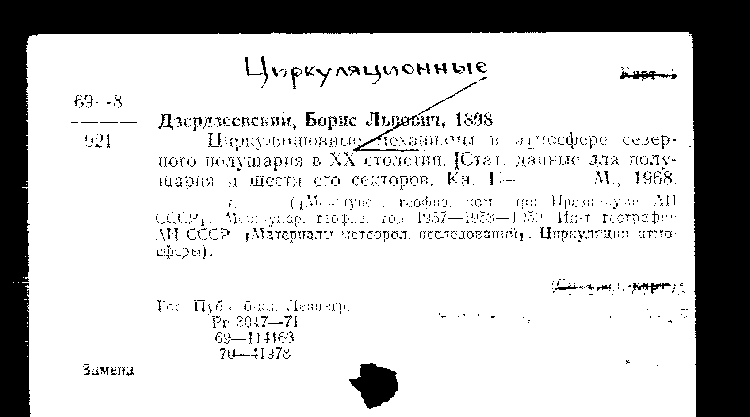 Циркуляционные
69-
921
Дзердзеевский, Борис Львович, 1898
Циркуляционные механизмы в атмосфере север-
ного полушария в XX столетии. [Стат. данные для полу-
шария и шести его секторов. Кн. 1— М., 1968.
геофиз. ком. при Президиуме АН
СССР]. Междунар. геофиз. год 1957—1958—1959 Ин-т географии
АН СССР [Материалы метеорол. исследований]. Циркуляция атмо-
сферы).
Гос. Публ. б-ка. Ленингр.
Рг 3047—71
69—114163
70—41978
Замена